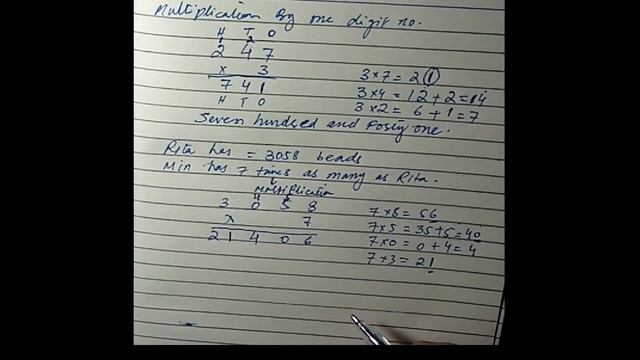 Multiplication by one digit no.
H T O
1 2
2 4 7
x 3
7 4 1
H T O
3 x 7 = 21
3 x 4 = 12 + 2 = 14
3 x 2 = 6 + 1 = 7
Seven hundred and Forty one.
Rita has = 3058 beads
Min has 7 times as many as Rita.
Multiplication
3 0 5 8
x 7
2 1 4 0 6
7 x 8 = 56
7 x 5 = 35 + 5 = 40
7 x 0 = 0 + 4 = 4
7 x 3 = 21